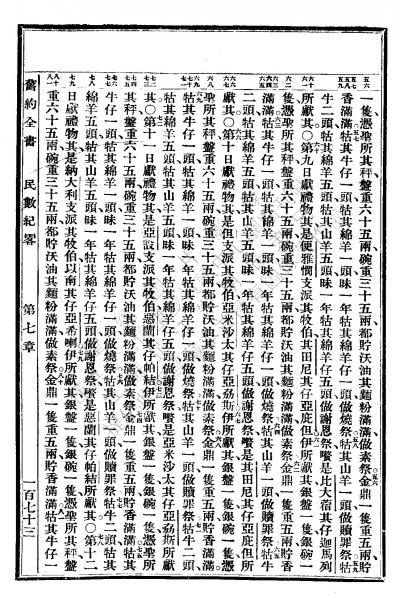 一隻憑聖所其秤盤重六十五兩碗重三十五兩都貯沃油其麵粉滿滿做素祭金鼎一隻重五兩貯
香滿滿牯其牛仔一頭牯其綿羊一頭昧一年牯其綿羊仔一頭做燒祭牯其山羊一頭做贖罪祭牯
牛二頭牯其綿羊五頭牯其山羊五頭昧一年牯其綿羊仔五頭做謝恩祭嚽是比大蓿其仔迦馬列
所獻其○第九日獻禮物其是便雅憫支派其牧伯其田尼其仔亞庇但伊所獻其銀盤一隻銀碗一
隻憑聖所其秤盤重六十五兩碗重三十五兩都貯沃油其麵粉滿滿做素祭金鼎一隻重五兩貯香
滿滿牯其牛仔一頭牯其綿羊一頭昧一年牯其綿羊仔一頭做燒祭牯其山羊一頭做贖罪祭牯牛
二頭牯其綿羊五頭牯其山羊五頭昧一年牯其綿羊仔五頭做謝恩祭嚽是其田尼其仔亞庇但所
獻其○第十日獻禮物其是但支派其牧伯亞米沙太其仔亞斯伊所獻其銀盤一隻銀碗一隻憑
聖所其秤盤重六十五兩碗重三十五兩都貯沃油其麵粉滿滿做素祭金鼎一隻重五兩貯香滿滿
牯其牛仔一頭牯其綿羊一頭昧一年牯其綿羊仔一頭做燒祭牯其山羊一頭做贖罪祭牯牛二頭
牯其綿羊五頭牯其山羊五頭昧一年牯其綿羊仔五頭做謝恩祭嚽是亞米沙太其仔亞斯所獻
其○第十一日獻禮物其是亞設支派其牧伯惡蘭其仔帕結伊所獻其銀盤一隻銀碗一隻憑聖所
其秤盤重六十五兩碗重三十五兩都貯沃油其麵粉滿滿做素祭金鼎一隻重五兩貯香滿滿牯其
牛仔一頭牯其綿羊一頭昧一年牯其綿羊仔一頭做燒祭牯其山羊一頭做贖罪祭牯牛二頭牯其
綿羊五頭牯其山羊五頭昧一年牯其綿羊仔五頭做謝恩祭嚽是惡蘭其仔帕結所獻其○第十二
日獻禮物其是納大利支派其牧伯以南其仔亞希喇伊所獻其銀盤一隻銀碗一隻憑聖所其秤盤
重六十五兩碗重三十五兩都貯沃油其麵粉滿滿做素祭金鼎一隻重五兩貯香滿滿牯其牛仔一
舊約全書 民數紀畧 第七章 一百七十三